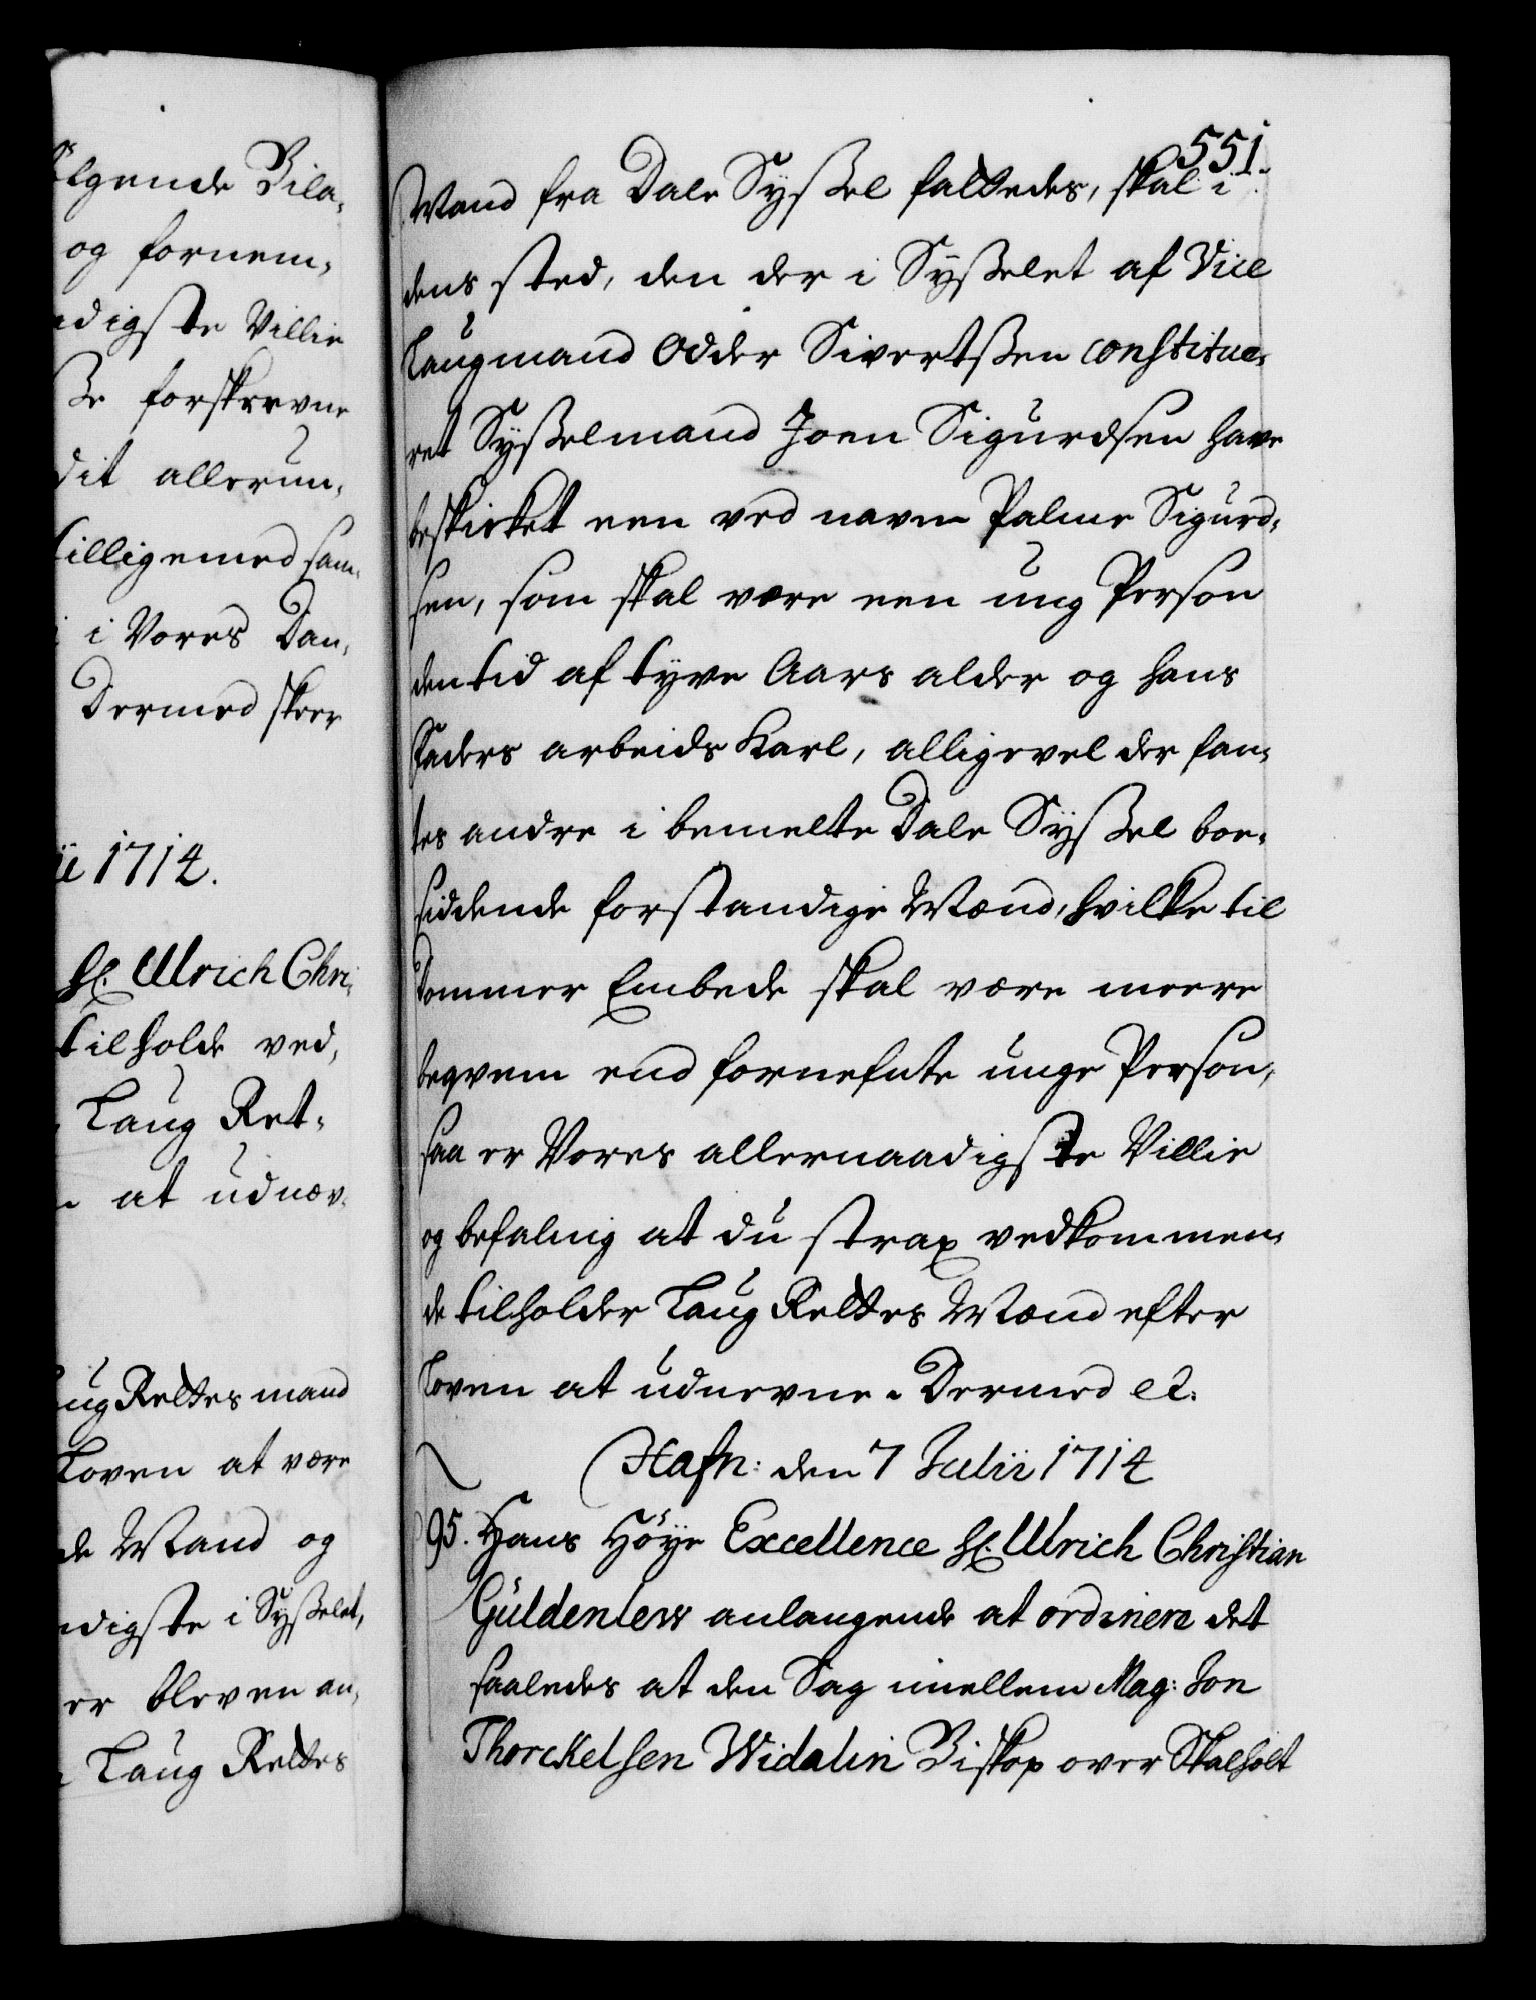 ølgende Bila-
og fornem-
adigste Villie
ße forskrevne
dit allerun-
tilligemed sam-
i Vores Dan-
Dermed skeer
ii 1714.
Hl. Ulrich Chri-
tilholde ved-
Laug Ret-
at udnæv-
aug Rettes mand
Loven at være
de Mand og
adigste i Syßelet,
er bleven an-
Laug Rettes
551.
Mand fra Dale Syßel fattedes, skal i
dens sted, den der i Syßelet af Vice
Laugmand Odder Sivertßen constitue-
ret Syßelmand Joen Sigurdsen have
beskicket een ved navn Palme Sigurd-
sen, som skal være een ung Person
den tid af tyve Aars alder og hans
Faders arbeids Karl, alligevel der fan-
tes andre i bemelte Dale Syßel boe-
siddende forstandige Mænd, hvilke til
Dommer Embede skal være meere
beqvem end fornefnte unge Person,
saa er Vores allernaadigste Villie
og befaling at du strax vedkommen-
de tilholder Laug Rettes Mænd efter
Loven at udnevne. Dermed etc.
Hafn: den 7 Julii 1714
95. Hans Høye Excellence Hl. Ulrich Christian
Güldenlew anlangende at ordinere det
saaledes at den Sag imellem Mag: Jon
Thorckelsen Widalin Biskop over Skalholt